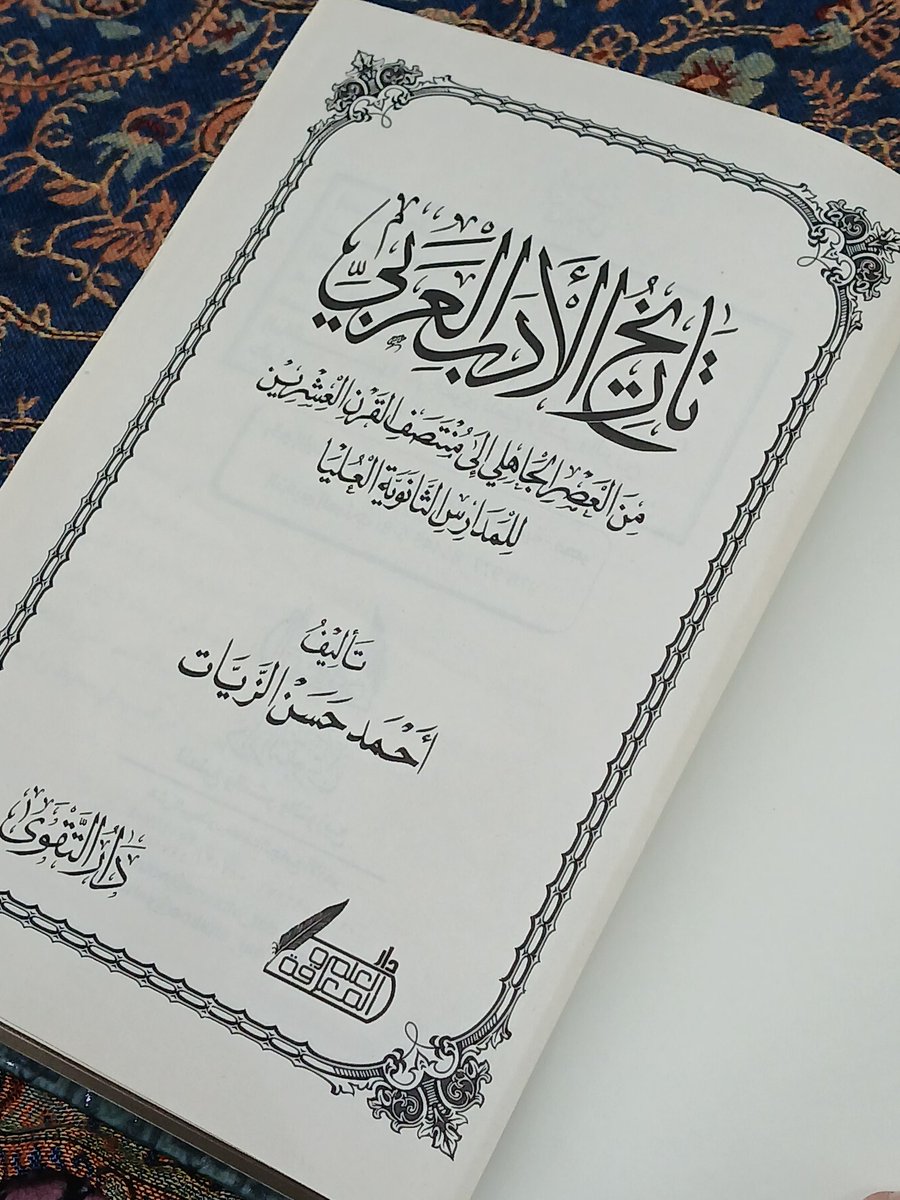 تَارِيخُ الْأَدَبِ الْعَرَبِيِّ
مِنَ الْعَصْرِ الْجَاهِلِي إِلَى مُنْتَصَفِ الْقَرْنِ الْعِشْرِيِنَ
لِلْمَدَارِسِ الثَّانَوِيَّةِ الْعُلْيَا
تَأْلِيفُ
أَحْمَد حَسَنْ الزَّيَّات
دَارُ التَّقْوَى
دار
العلوم و
المعرفة